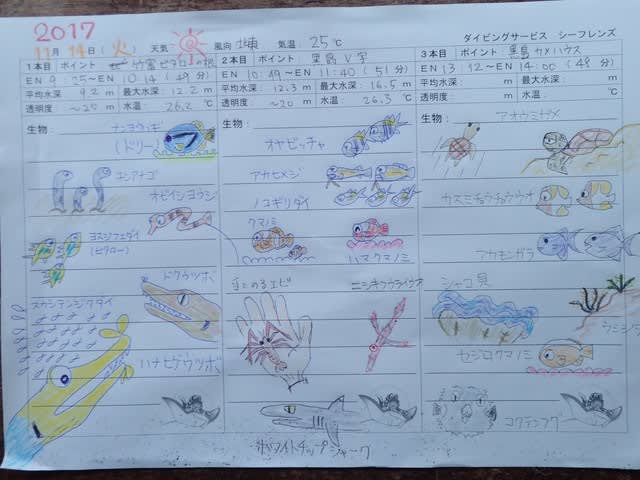 2017
ダイビングサービス シーフレンズ
11月14日(火) 天気 風向 北東 気温: 25℃
1本目 ポイント 竹富ピタローの根
EN 9:25~EN 10:14 (49分)
平均水深: 9.2 m 最大水深: 12.2 m
透明度: ~20 m 水温: 26.2 ℃
生物:
ナンヨウハギ
(ドリー)
チンアナゴ
オビイシヨウジ
ヨスジフエダイ
(ピタロー)
ドクウツボ
スカシテンジクダイ
ハナヒゲウツボ
2本目 ポイント: 黒島 V字
EN 10:49~EN 11:40 (51分)
平均水深: 12.3 m 最大水深: 16.5 m
透明度: ~20 m 水温: 26.3 ℃
生物:
オヤビッチャ
アカヒメジ
ノコギリダイ
クマノミ
ハマクマノミ
手にのるエビ
ニシキフウライウオ
ホワイトチップシャーク
3本目 ポイント: 黒島カメハウス
EN 13:12~EN 14:00 (48分)
平均水深: m 最大水深: m
透明度: m 水温: ℃
生物:
アオウミガメ
カスミチョウチョウウオ
アカモンガラ
シャコ貝
ウミシダ
セジロクマノミ
コクテンフグ